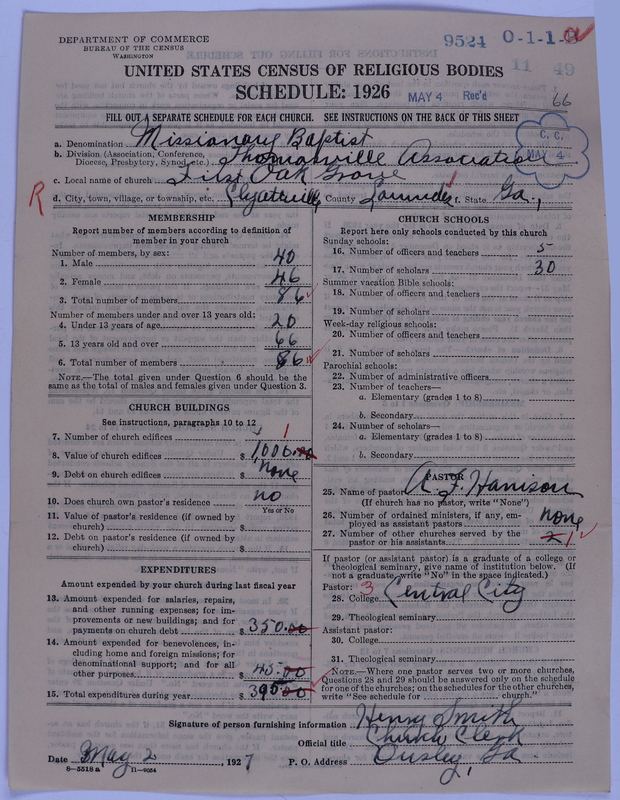 DEPARTMENT OF COMMERCE
BUREAU OF THE CENSUS
WASHINGTON
9524 0-1-1-
11 49
UNITED STATES CENSUS OF RELIGIOUS BODIES
SCHEDULE: 1926
MAY 4 Rec'd
66
FILL OUT A SEPARATE SCHEDULE FOR EACH CHURCH. SEE INSTRUCTIONS ON THE BACK OF THIS SHEET
C. C.
MAY 4
a. Denomination Missionary Baptist
b. Division (Association, Conference, Diocese, Presbytery, Synod, etc.) Thomasville Association
c. Local name of church First Oak Grove
R
d. City, town, village, or township, etc. Clyattville County Lowndes f. State Ga.,
MEMBERSHIP
Report number of members according to definition of
member in your church
Number of members, by sex:
1. Male 40
2. Female 46
3. Total number of members 86
Number of members under and over 13 years old:
4. Under 13 years of age 20
5. 13 years old and over 66
6. Total number of members 86
NOTE.—The total given under Question 6 should be the
same as the total of males and females given under Question 3.
CHURCH BUILDINGS
See instructions, paragraphs 10 to 12
7. Number of church edifices 1
8. Value of church edifices $ 1,000.00
9. Debt on church edifices $ None
10. Does church own pastor's residence no
Yes or No
11. Value of pastor's residence (if owned by
church) $
12. Debt on pastor's residence (if owned by
church) $
EXPENDITURES
Amount expended by your church during last fiscal year
13. Amount expended for salaries, repairs,
and other running expenses; for im-
provements or new buildings; and for
payments on church debt $ 350.00
14. Amount expended for benevolences, in-
cluding home and foreign missions; for
denominational support; and for all
other purposes $ 45.00
15. Total expenditures during year $ 395.00
CHURCH SCHOOLS
Report here only schools conducted by this church
Sunday schools:
16. Number of officers and teachers 5
17. Number of scholars 30
Summer vacation Bible schools:
18. Number of officers and teachers
19. Number of scholars
Week-day religious schools:
20. Number of officers and teachers
21. Number of scholars
Parochial schools:
22. Number of administrative officers
23. Number of teachers—
a. Elementary (grades 1 to 8)
b. Secondary
24. Number of scholars—
a. Elementary (grades 1 to 8)
b. Secondary
PASTOR
25. Name of pastor A. F. Harrison
(If church has no pastor, write "None")
26. Number of ordained ministers, if any, em-
ployed as assistant pastors none
27. Number of other churches served by the
pastor or his assistants 2 1
If pastor (or assistant pastor) is a graduate of a college or
theological seminary, give name of institution below. (If
not a graduate, write "No" in the space indicated.)
Pastor: 3
28. College Central City
29. Theological seminary
Assistant pastor:
30. College
31. Theological seminary
NOTE.—Where one pastor serves two or more churches,
Questions 28 and 29 should be answered only on the schedule
for one of the churches; on the schedules for the other churches,
write "See schedule for church."
Signature of person furnishing information Henry Smith
Official title Church Clerk
Date May 2, 1927 P. O. Address Ousley, Ga.
8—5518 a 11—9054